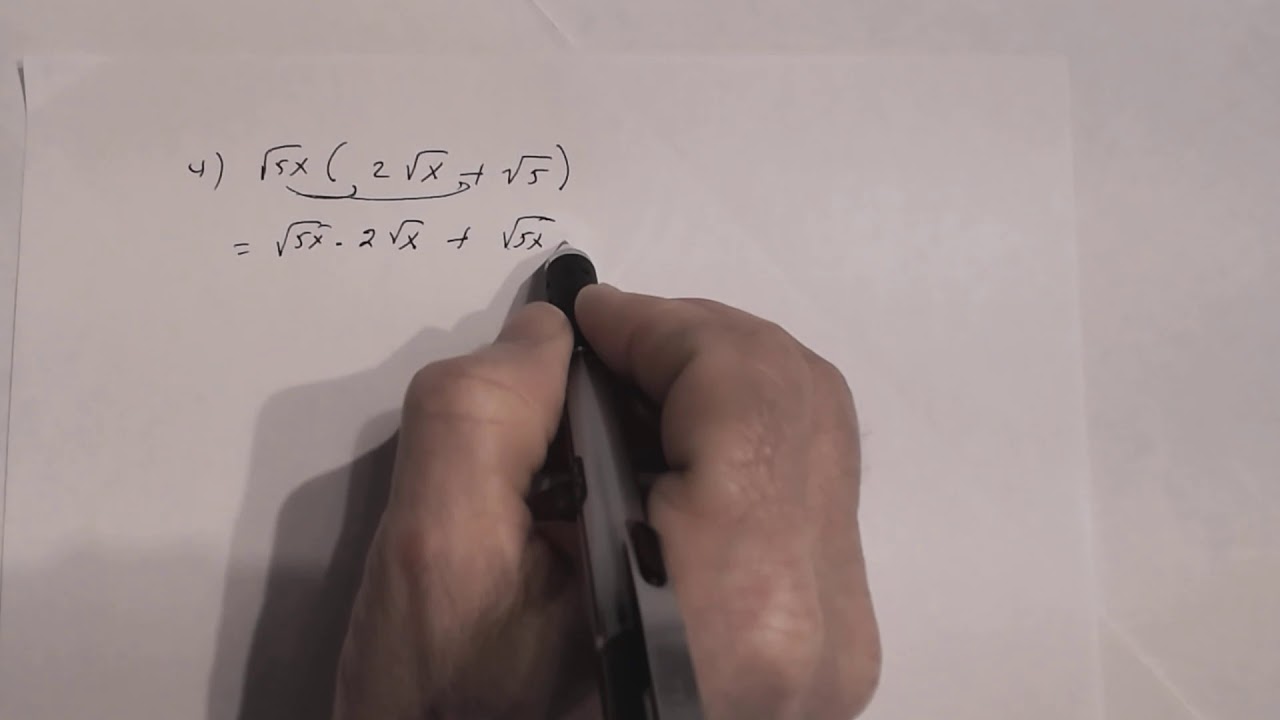 4) √5x ( 2 √x + √5 )
= √5x · 2 √x + √5x